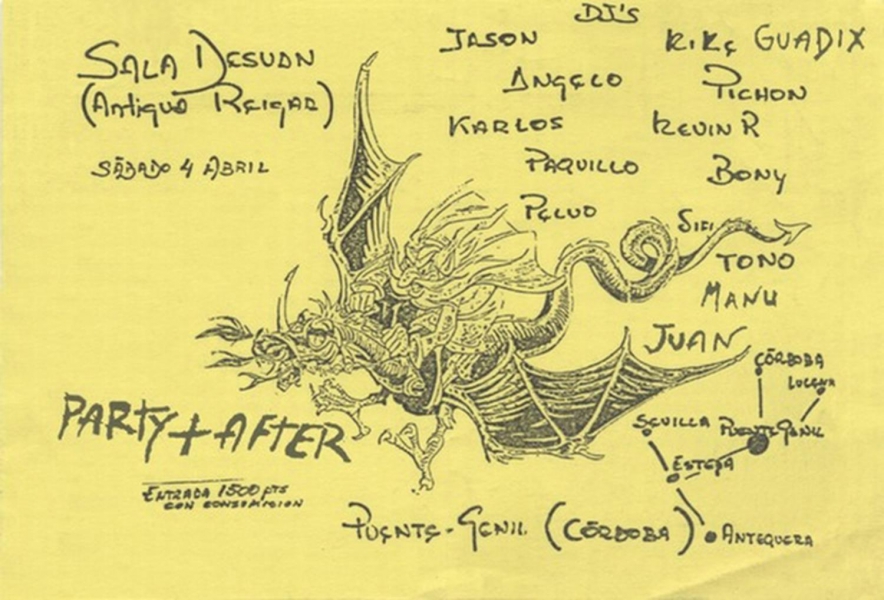 SALA DESVAN
(Antigua REIGAR)
SÁBADO 4 ABRIL
DJ'S
JASON
KIKE GUADIX
ANGELO
PICHON
KARLOS
KEVIN R
PAQUILLO
BONY
PELUO
SIFI
TONO
MANU
JUAN
CÓRDOBA
LUCENA
SEVILLA
PUENTE-GENIL
ESTEPA
ANTEQUERA
PARTY + AFTER
ENTRADA 1500 PTS
CON CONSUMICION
PUENTE-GENIL (CÓRDOBA)